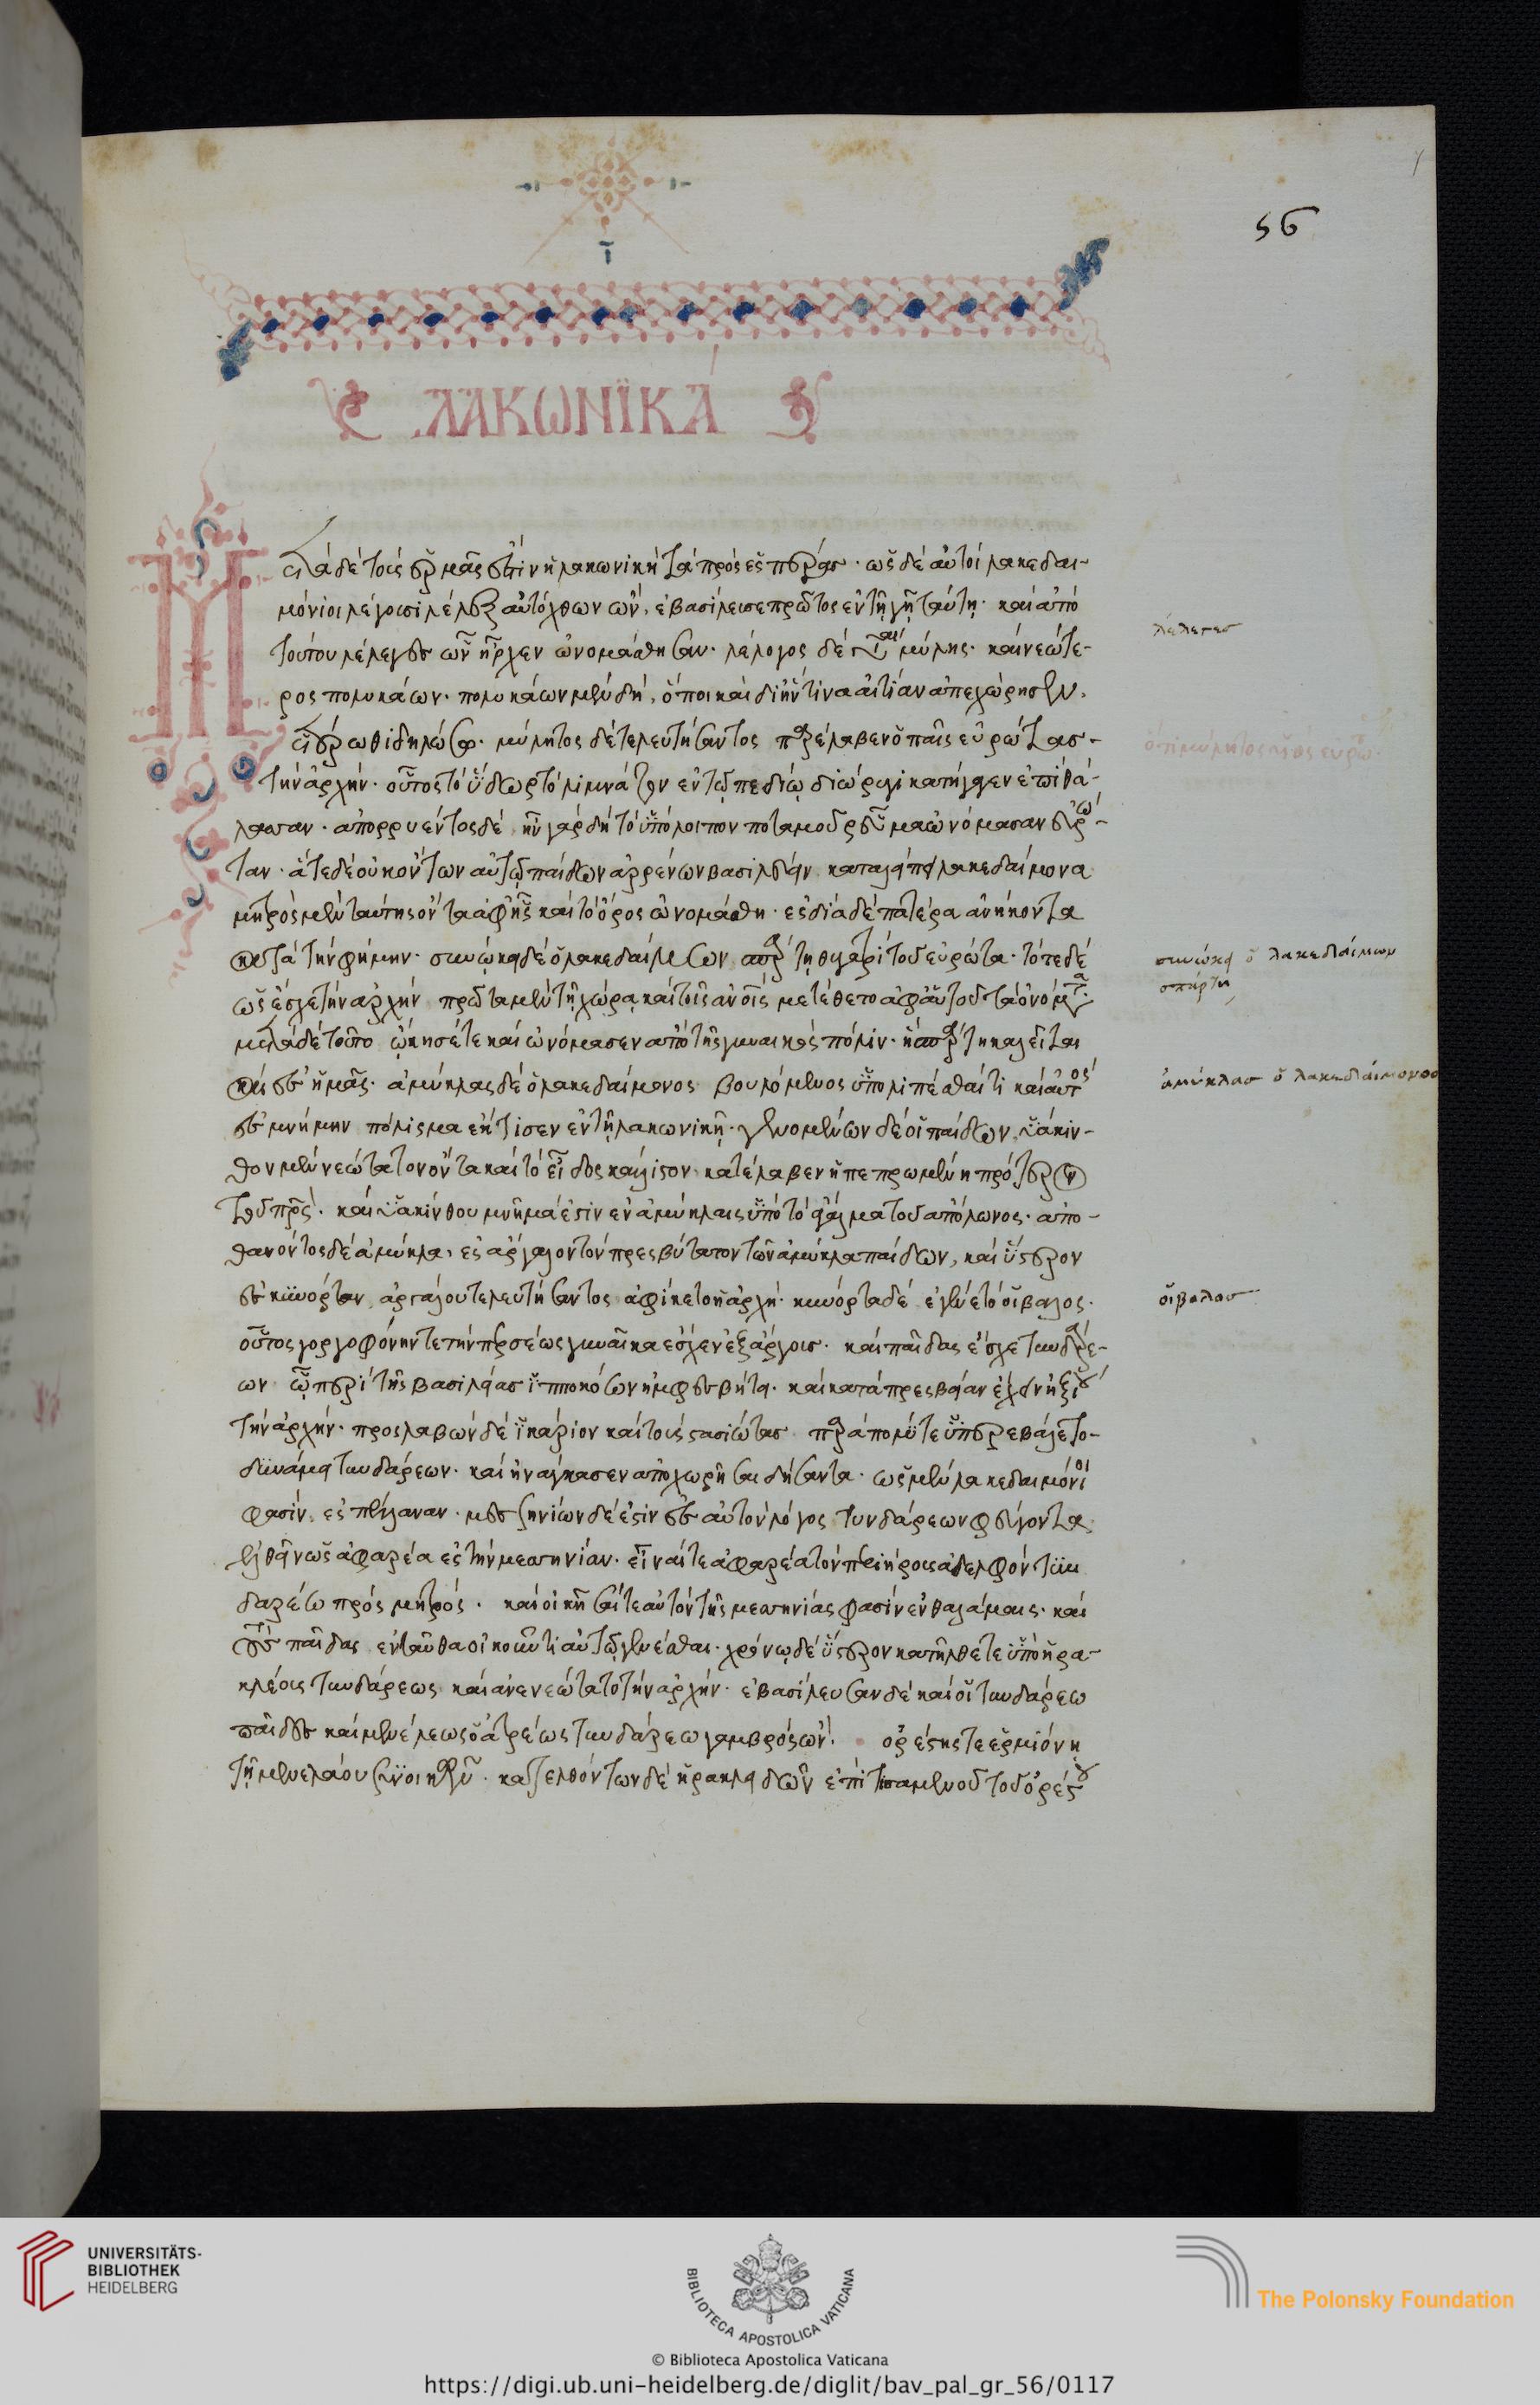 56
Γ
ΛΑΚΩΝΙΚΆ
Μετὰ δὲ τοὺς ἑρμᾶς ἐστὶν ἡ λακωνικὴ τὰ πρὸς ἑσπέρας· ὡς δὲ αὐτοὶ λακεδαι-
μόνιοι λέγουσι λέλεξ αὐτόχθων ὢν, ἐβασίλευσε πρῶτος ἐν τῇ γῇ ταύτῃ· καὶ ἀπὸ
τούτου λέλεγες ὧν ἦρχεν ὠνομάσθησαν. λέλεγος δὲ γίνεται μύλης· καὶ νεώτε-
ρος πολυκάων· πολυκάων μὲν δὴ, ὅποι καὶ δι' ἥν τινα αἰτίαν ἀπεχώρησεν,
ἑτέρωθι δηλώσω. μύλητος δὲ τελευτήσαντος παρέλαβεν ὁ παῖς εὐρώτας
τὴν ἀρχήν· οὗτος τὸ ὕδωρ τὸ λιμνάζον ἐν τῷ πεδίῳ διώρυχι κατήγαγεν ἐπὶ θά-
λασσαν· ἀπορρυέντος δὲ ἦν γὰρ δὴ τὸ ὑπόλοιπον ποταμοῦ ῥεῦμα ὠνόμασαν εὐρώ-
ταν· ἅτε δὲ οὐκ ὄντων αὐτῷ παίδων ἀρρένων βασιλεύειν καταλείπει λακεδαίμονα
μητρὸς μὲν ταϋγέτης ὄντα ἀφ' ἧς καὶ τὸ ὄρος ὠνομάσθη· ἐς δία δὲ πατέρα ἀνήκοντα
κατὰ τὴν φήμην· συνῴκει δὲ ὁ λακεδαίμων σπάρτῃ θυγατρὶ τοῦ εὐρώτα· τότε δὲ
ὡς ἔσχε τὴν ἀρχὴν πρῶτα μὲν τῇ χώρᾳ καὶ τοῖς ἀνοις μετέθετο ἀφ' αὑτοῦ τὰ ὀνόματα.
μετὰ δὲ τοῦτο ᾤκησέ τε καὶ ὠνόμασεν ἀπὸ τῆς γυναικὸς πόλιν· ἣ σπάρτη καλεῖται
καὶ ἐς ἡμᾶς· ἀμύκλας δὲ ὁ λακεδαίμονος βουλόμενος ὑπολιπέσθαι τι καὶ αὐτὸς
ἐς μνήμην πόλισμα ἔκτισεν ἐν τῇ λακωνικῇ· γενομένων δέ οἱ παίδων ὑάκιν-
θον μὲν νεώτατον ὄντα καὶ τὸ εἶδος κάλλιστον κατέλαβεν ἡ πεπρωμένη πρότερον
τοῦ πρς· καὶ ὑακίνθου μνῆμά ἐστιν ἐν ἀμύκλαις ὑπὸ τὸ ἄγαλμα τοῦ ἀπόλωνος· ἀπο-
θανόντος δὲ ἀμύκλα, ἐς ἄργαλον τὸν πρεσβύτατον τῶν ἀμύκλα παίδων, καὶ ὕστερον
ἐς κυνόρταν ἀργάλου τελευτήσαντος ἀφίκετο ἡ ἀρχή· κυνόρτα δὲ ἐγένετο οἴβαλος·
οὗτος γοργοφόνην τε τὴν περσέως γυναῖκα ἔσχεν ἐξ ἄργους· καὶ παῖδας ἔσχε τυνδάρε-
ων ᾧ περὶ τῆς βασιλείας ἱπποκόων ἠμφεσβήτει· καὶ κατὰ πρεσβείαν ἔχειν ἠξίου
τὴν ἀρχήν· προσλαβὼν δὲ ἰκάριον καὶ τοὺς στασιώτας παρὰ πολύ τε ὑπερεβάλετο
δυνάμει τυνδάρεων· καὶ ἠνάγκασεν ἀποχωρῆσαι δείσαντα· ὡς μὲν λακεδαιμόνιοι
φασὶν, ἐς πελλάναν· μεσσηνίων δέ ἐστιν ἐς αὐτὸν λόγος τυνδάρεων φεύγοντα
ἐλθεῖν ὡς ἀφαρέα ἐς τὴν μεσσηνίαν· εἶναί τε ἀφαρέα τὸν περιήρους ἀδελφὸν τυν
δαρέω πρὸς μητρός· καὶ οἰκῆσαί τε αὐτὸν τῆς μεσσηνίας φασὶν ἐν θαλάμαις· καὶ
τοὺς παῖδας ἐνταῦθα οἰκοῦντι αὐτῷ γενέσθαι· χρόνῳ δὲ ὕστερον κατῆλθέ τε ὑπὸ ἡρα-
κλέους τυνδάρεως καὶ ἀνενεώσατο τὴν ἀρχήν· ἐβασίλευσαν δὲ καὶ οἱ τυνδάρεω
παῖδες καὶ μενέλεως ὁ ἀτρέως τυνδάρεω γαμβρὸς ὤν· ὀρέστης τε ἑρμιόνῃ
τῇ μενελάου συνοικῶν· κατελθόντων δὲ ἡρακλειδῶν ἐπὶ τισαμενοῦ τοῦ ὀρέστου
λέλεγεσ
ὅτι μύλητος υἱος ευρώ.
συνώκει ὁ λακεδαίμων
σπάρτη
ἀμύκλασ ὁ λακεδαίμονοσ
οἴβαλοσ
UNIVERSITÄTS-
BIBLIOTHEK
HEIDELBERG
BIBLIOTECA APOSTOLICA VATICANA
The Polonsky Foundation
© Biblioteca Apostolica Vaticana
https://digi.ub.uni-heidelberg.de/diglit/bav_pal_gr_56/0117